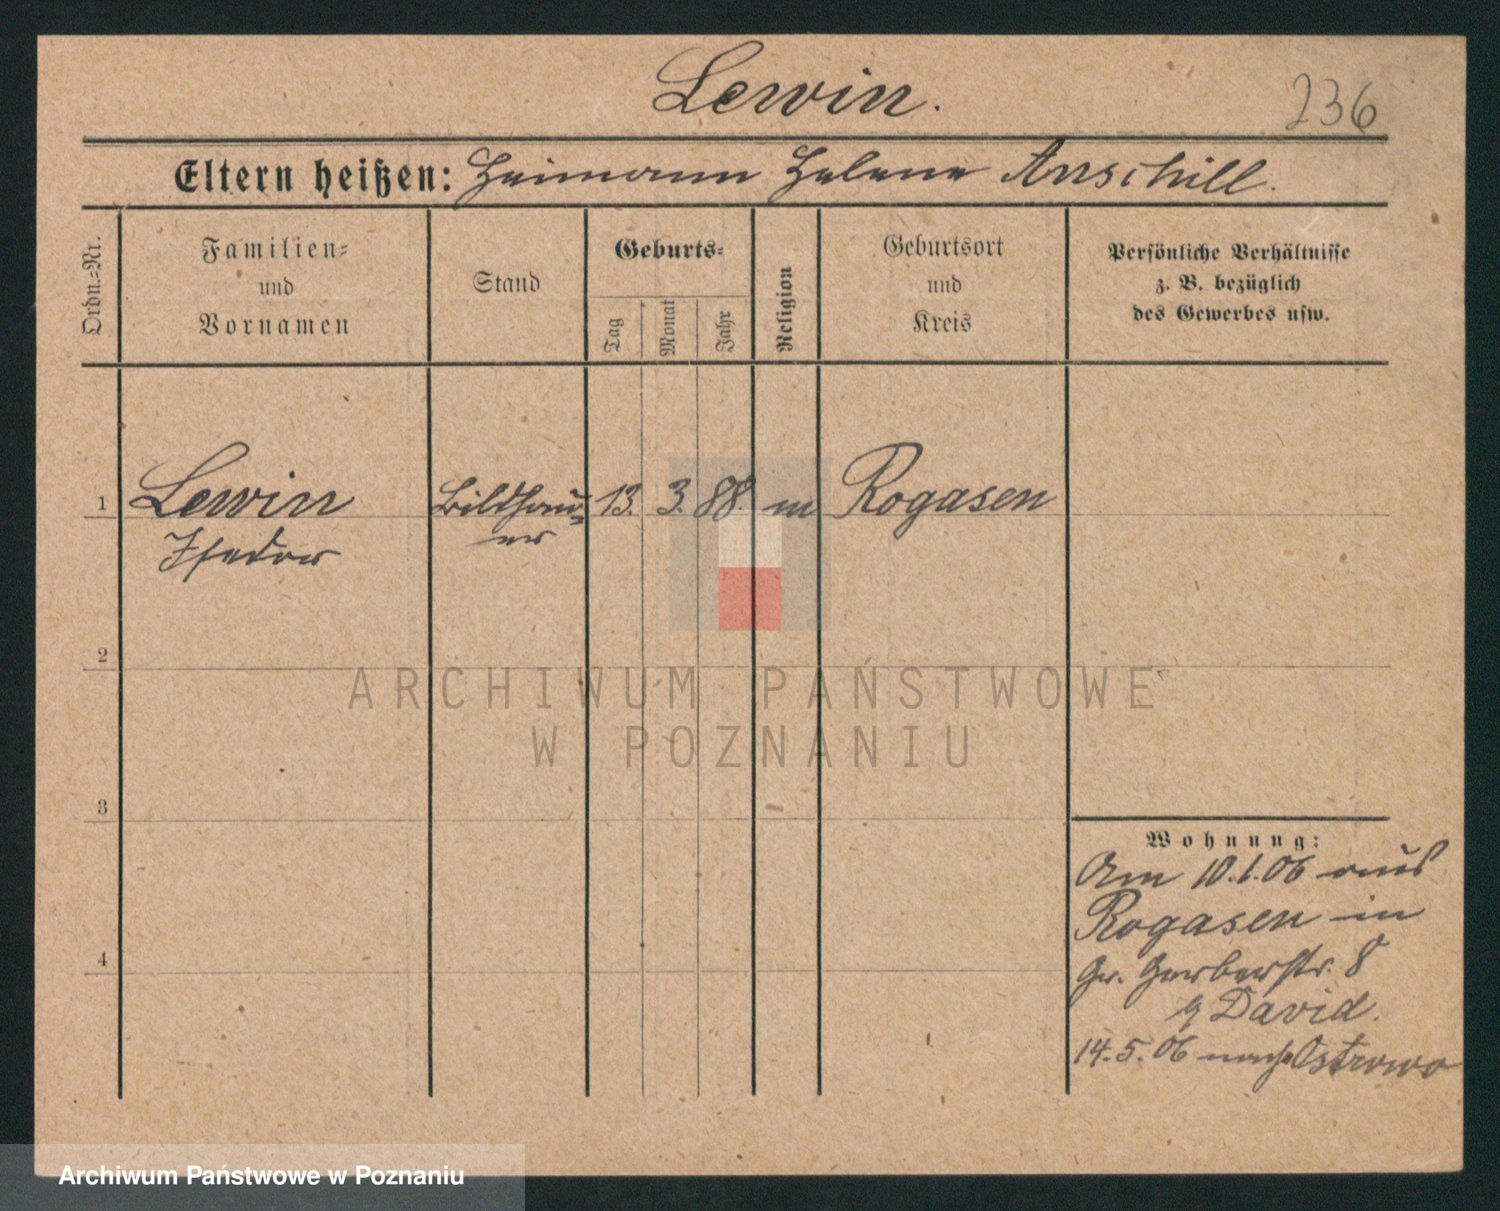 Lewin.
236
Eltern heißen: Heimann Helene Anschill.
Ordn.-Nr.
Familien-
und
Vornamen
Stand
Geburts-
Tag
Monat
Jahr
Religion
Geburtsort
und
Kreis
Persönliche Verhältnisse
z. B. bezüglich
des Gewerbes usw.
1 Lewin Bildhau- 13. 3. 88. m Rogasen
Isedor er
2
3
4
Wohnung:
Am 10.1.06 aus
Rogasen in
Gr. Gerberstr. 8
David.
14.5.06 nach Ostrowo
ARCHIWUM PAŃSTWOWE
W POZNANIU
Archiwum Państwowe w Poznaniu